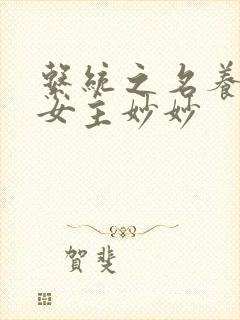 繫統之名養
女主妙妙
賀斐